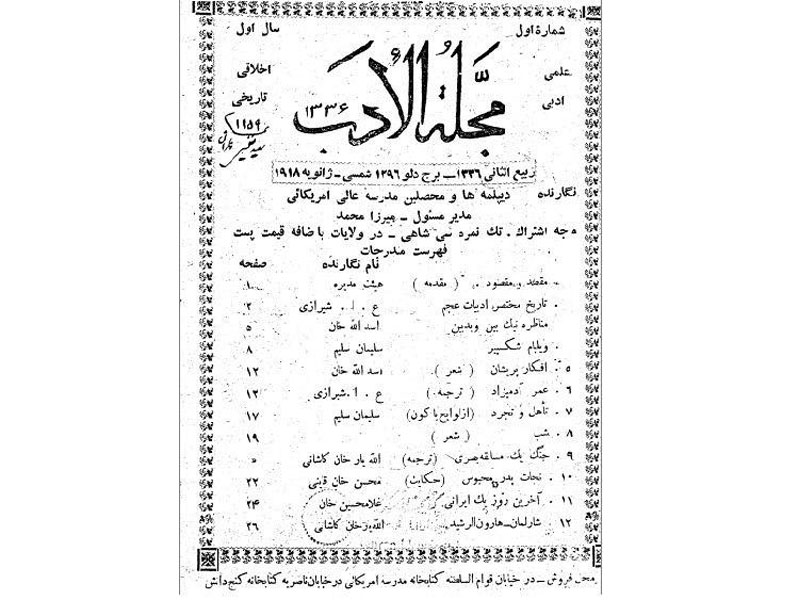 شمارهٔ اول
سال اول
علمی
ادبی
مجلة الأدب
۱۳۳۶
اخلاقی
تاریخی
۱۱۵۹
ربیع الثانی ۱۳۳۶ ــ برج دلو ۱۲۹۶ شمسی ــ ژانویه ۱۹۱۸
نگارنده دیپلمه ها و محصلین مدرسه عالی امریکائی
مدیر مسئول ــ میرزا محمد
وجه اشتراك . تك نمره سی شاهی ــ در ولایات باضافه قیمت پست
فهرست مندرجات
نام نگارنده صفحه
مقصد و مقصود . ( مقدمه ) هیئت مدیره ۱
. تاریخ مختصر ادبیات عجم ع . ا . شیرازی ۲
مناظره نیك بین و بدبین اسد الله خان ۵
. ویلیام شکسپیر سلیمان سلیم ۸
۵ . افکار پریشان ( شعر ) . اسد الله خان ۱۲
۶ . عمر آدمیزاد ( ترجمه . ) ع . ا . شیرازی ۱۳
۷ . تأهل و تجرد (از لوایح باکون) سلیمان سلیم ۱۷
۸ . شب ( شعر ) ۱۹
۹ . جنگ یك مسابقه بصری (ترجمه) الله یار خان کاشانی
۱۰ . نجات پدر محبوس (حکایت) محسن خان قرینی ۲۲
۱۱ . آخرین روز یك ایرانی غلامحسین خان ۲۴
۱۲ . شارلمان ــ هارون الرشید اللهیار خان کاشانی ۲۶
محل فروش ــ در خیابان قوام السلطنه کتابخانه مدرسه امریکائی در خیابان ناصریه کتابخانه گنج دانش